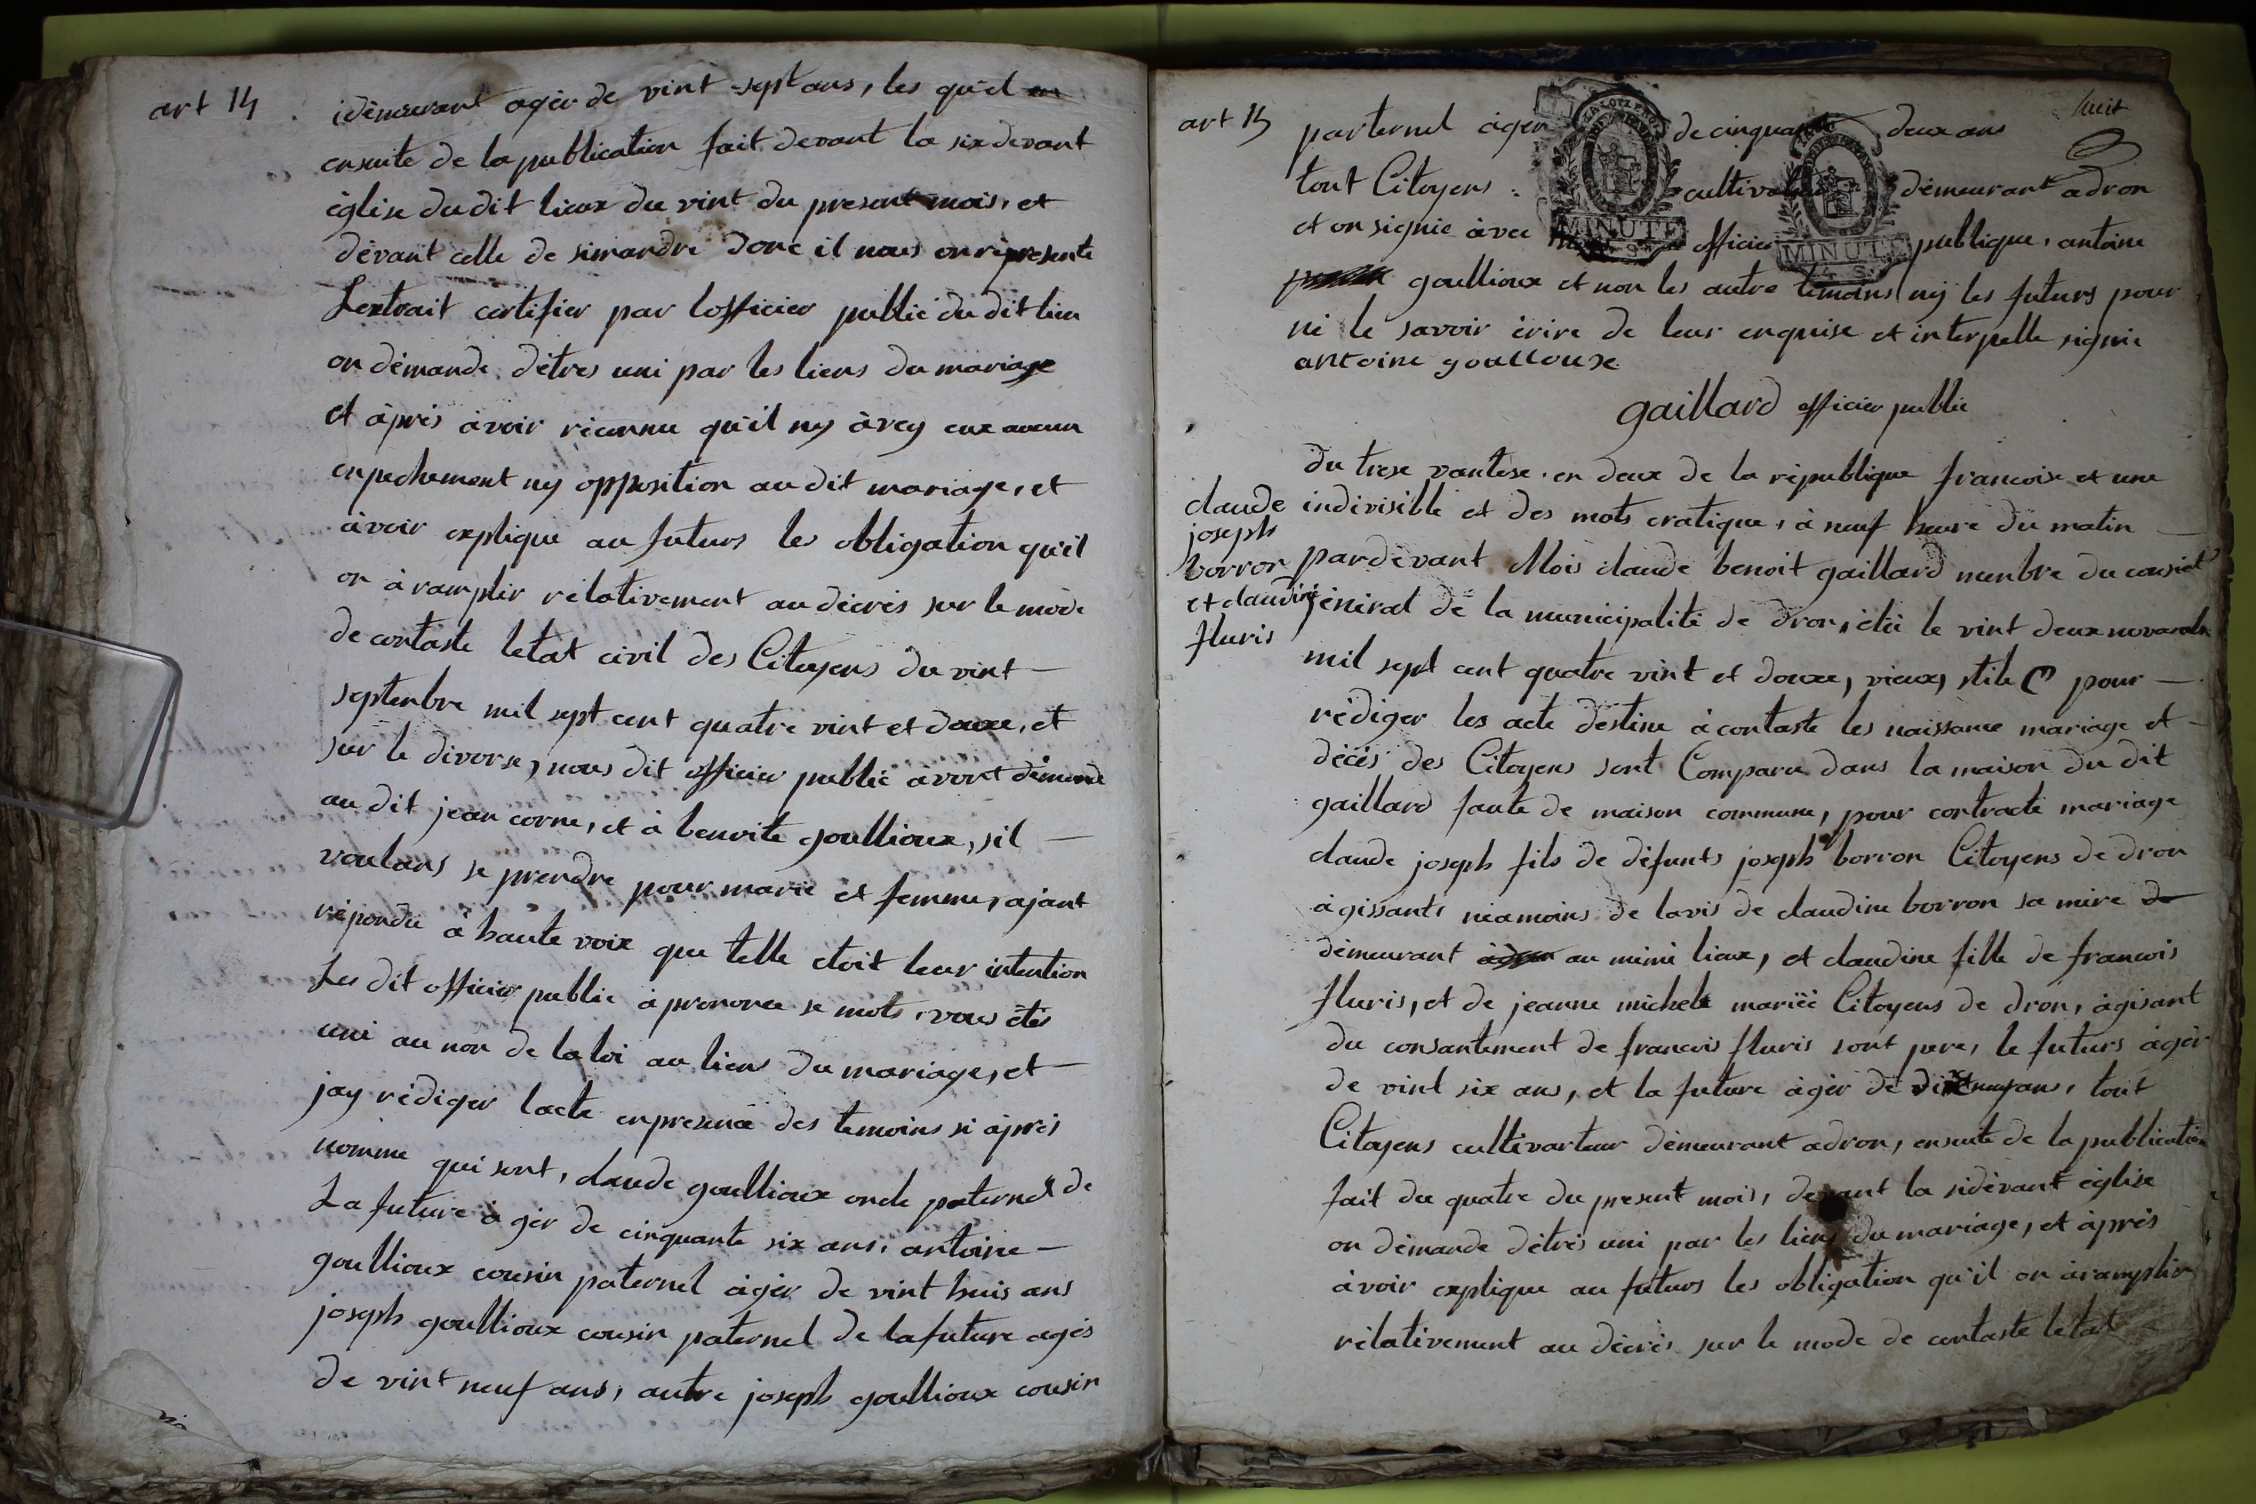 art 14
idèmeurant agèr de vint-sept ans, les quèl
ensuite de la publication fait devant la sixdevant
èglise du dit lieux du vint du present mois, et
dèvant celle de simandre donc il nous on rèpresente
Lextrait certifier par lofficier publié du dit lieu
on dèmande dètres uni par les liens du mariage
et àprès àvoir rèconnu qu'il ny àvey eux aucun
enpechement ny opposition au dit mariage, et
àvoir explique au futurs les obligation qu'il
on à ramplir rèlativement au dècrès sur le mode
de contaste letat civil des Citoyens du vint
septenbre mil sept cent quatre vint et douxe, et
sur le divorse, nous dit officier public àvont dèmande
au dit jean corne, et à benoite goullioux, sil
voulans se prendre pour marie et femme, ajant
rèpondu à haute voix que telle etoit leur intention
Les dit officier public à prononce se mots, vous ètès
uni au non de la loi au liens du mariage, et
jay rèdiger lacte enpresence des temoins si àprès
nomme qui sont, claude goullioux oncle paternel de
La future à gèr de cinquante six ans, antoine
goullioux cousin paternel àgèr de vint huis ans
joseph goullioux cousin paternel de la future agès
de vint neuf ans, autre joseph goullioux cousin
art 15
huit
parternel àger de cinquante deux ans
tout Citoyens cultivateur dèmeurant adron
et on signie àvec officier publique, antoine
goullioux et non les autre temoins ny les futurs pour
ni le savoir ècrire de leur enquise et interpelle signie
antoine goulloux
gaillard officier public
claude
joseph
borron
et claudine
fluris
du trese vantose en deux de la rèpublique francoise et une
indivisible et des mots cratique, à neuf heure du matin
pardèvant Mois claude benoit gaillard menbre du consiel
jèneral de la municipalitè de dron, èlu le vint deux novanbre
mil sept cent quatre vint et douxe, vieux, stile pour
rèdiger les acte destine à contaste les naissance mariage et
dècès des Citoyens sont Comparu dans la maison du dit
gaillard faute de maison commune, pour contracte mariage
claude joseph fils de dèfunts joseph borron Citoyens de dron
àgissants nèamoins de lavis de claudine borron sa mère de
dèmeurant au mème lieux, et claudine fille de francois
fluris, et de jeanne michele mariée Citoyens de dron, àgisant
du consantement de francois fluris sont pere, le futurs àgèr
de vint six ans, et la future àgèr de dixneuf ans, tout
Citoyens cultivarteur dèmeurant adron, ensuite de la publication
fait du quatre du present mois, devant la sidèvant èglise
on dèmande dètrès uni par les liens du mariage, et àprès
àvoir explique au futurs les obligation qu'il on àramplir
rèlativement au dècrès sur le mode de contaste letat
MINUTE
MINUTE